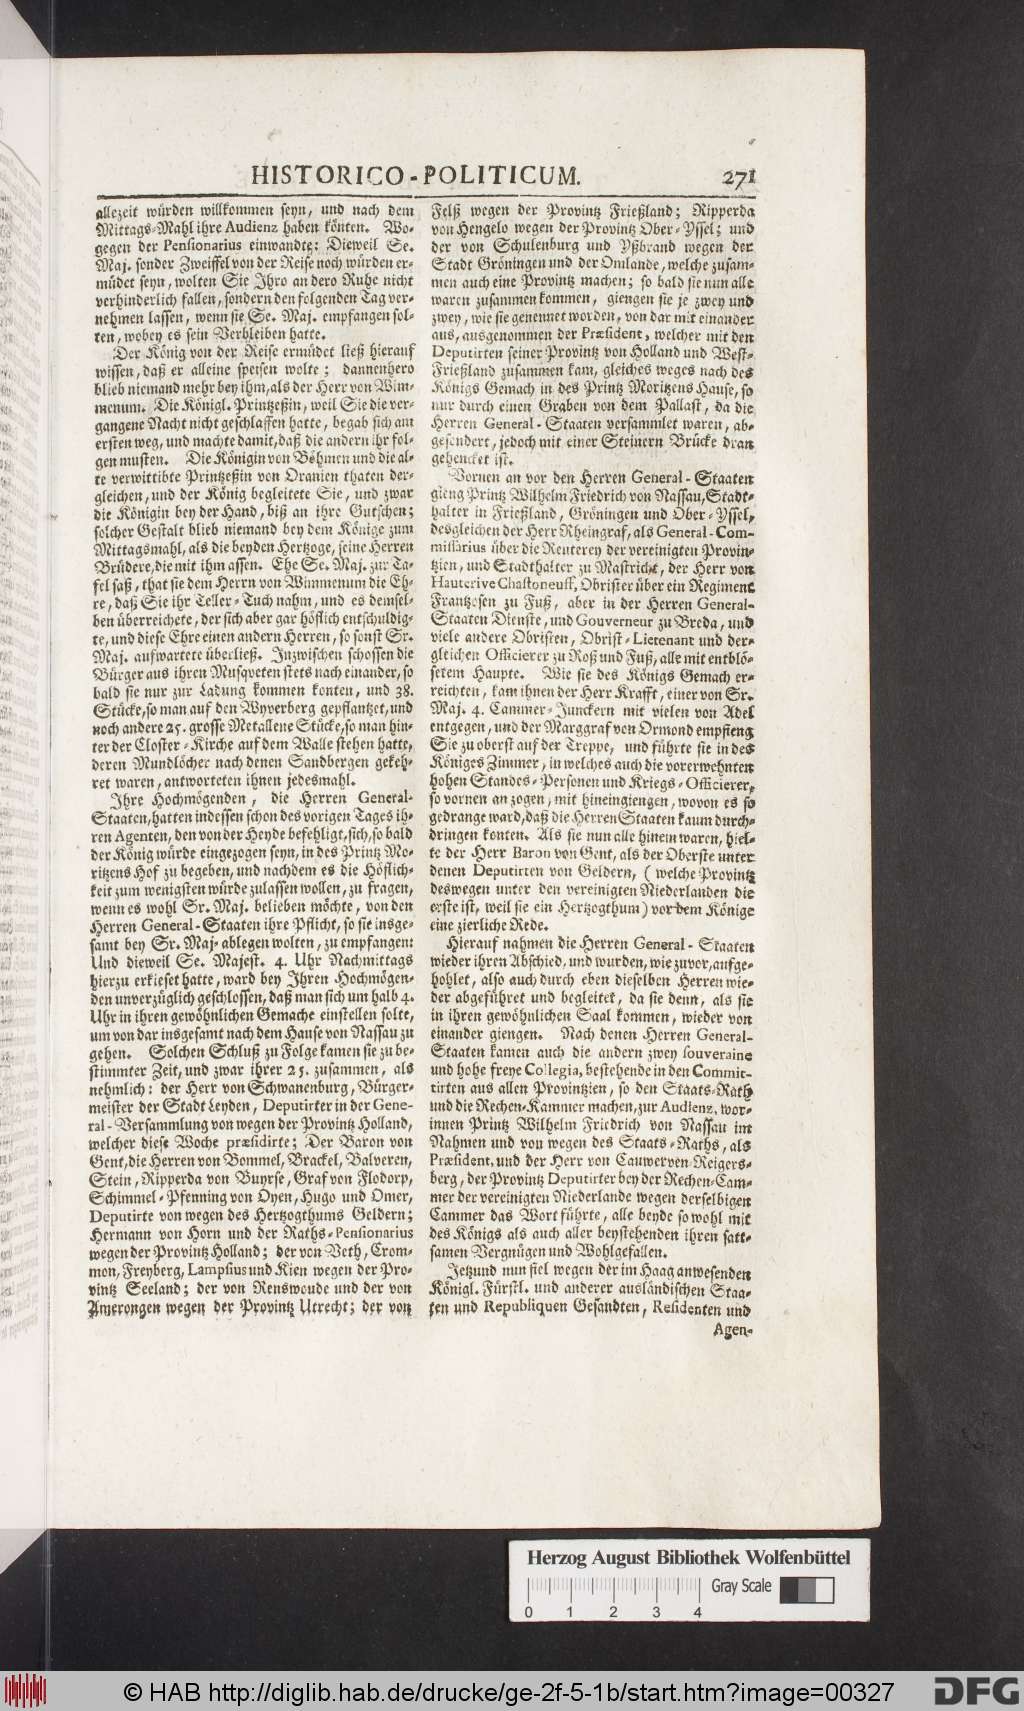 HISTORICO-POLITICUM. 271
allezeit würden willkommen seyn, und nach dem
Mittags-Mahl ihre Audienz haben könten. Wo-
gegen der Pensionarius einwandte: Dieweil Se.
Maj. sonder Zweiffel von der Reise noch würden er-
müdet seyn, wolten Sie Ihro an dero Ruhe nicht
verhinderlich fallen, sondern den folgenden Tag ver-
nehmen lassen, wenn sie Se. Maj. empfangen sol-
ten, wobey es sein Verbleiben hatte.
Der König von der Reise ermüdet ließ hierauf
wissen, daß er alleine speisen wolte; dannenhero
blieb niemand mehr bey ihm, als der Herr von Wim-
menum. Die Königl. Printzeßin, weil Sie die ver-
gangene Nacht nicht geschlaffen hatte, begab sich am
ersten weg, und machte damit, daß die andern ihr fol-
gen musten. Die Königin von Böhmen und die al-
te verwittibte Printzeßin von Oranien thaten der-
gleichen, und der König begleitete Sie, und zwar
die Königin bey der Hand, biß an ihre Gutschen;
solcher Gestalt blieb niemand bey dem Könige zum
Mittagsmahl, als die beyden Hertzoge, seine Herren
Brüdere, die mit ihm assen. Ehe Se. Maj. zur Ta-
fel saß, that sie dem Herrn von Wimmenum die Eh-
re, daß Sie ihr Teller-Tuch nahm, und es demsel-
ben überreichete, der sich aber gar höflich entschuldig-
te, und diese Ehre einen andern Herren, so sonst Sr.
Maj. aufwartete überließ. Inzwischen schossen die
Bürger aus ihren Musqveten stets nach einander, so
bald sie nur zur Ladung kommen konten, und 38.
Stücke, so man auf den Wyverberg gepflantzet, und
noch andere 25. grosse Metallene Stücke, so man hin-
ter der Closter-Kirche auf dem Walle stehen hatte,
deren Mundlöcher nach denen Sandbergen gekeh-
ret waren, antworteten ihnen jedesmahl.
Ihre Hochmögenden, die Herren General-
Staaten, hatten indessen schon des vorigen Tages ih-
ren Agenten, den von der Heyde befehligt, sich, so bald
der König würde eingezogen seyn, in des Printz Mo-
ritzens Hof zu begeben, und nachdem es die Höflich-
keit zum wenigsten würde zulassen wollen, zu fragen,
wenn es wohl Sr. Maj. belieben möchte, von den
Herren General-Staaten ihre Pflicht, so sie insge-
samt bey Sr. Maj. ablegen wolten, zu empfangen:
Und dieweil Se. Majest. 4. Uhr Nachmittags
hierzu erkieset hatte, ward bey Ihren Hochmögen-
den unverzüglich geschlossen, daß man sich um halb 4.
Uhr in ihren gewöhnlichen Gemache einstellen solte,
um von dar insgesamt nach dem Hause von Nassau zu
gehen. Solchen Schluß zu Folge kamen sie zu be-
stimmter Zeit, und zwar ihrer 25. zusammen, als
nehmlich: der Herr von Schwanenburg, Bürger-
meister der Stadt Leyden, Deputirter in der Gene-
ral-Versammlung von wegen der Provintz Holland,
welcher diese Woche præsidirte; Der Baron von
Gent, die Herren von Bommel, Brackel, Balveren,
Stein, Ripperda von Buyrse, Graf von Flodorp,
Schimmel-Pfenning von Oyen, Hugo und Omer,
Deputirte von wegen des Hertzogthums Geldern;
Hermann von Horn und der Raths-Pensionarius
wegen der Provintz Holland; der von Veth, Crom-
mon, Freyberg, Lampsius und Kien wegen der Pro-
vintz Seeland; der von Renswoude und der von
Amerongen wegen der Provintz Utrecht; der von
Felß wegen der Provintz Frießland; Ripperda
von Hengelo wegen der Provintz Ober-Yssel; und
der von Schulenburg und Yßbrand wegen der
Stadt Gröningen und der Omlande, welche zusam-
men auch eine Provintz machen; so bald sie nun alle
waren zusammen kommen, giengen sie je zwey und
zwey, wie sie genennet worden, von dar mit einander
aus, ausgenommen der Præsident, welcher mit den
Deputirten seiner Provintz von Holland und West-
Frießland zusammen kam, gleiches weges nach des
Königs Gemach in des Printz Moritzens Hause, so
nur durch einen Graben von dem Pallast, da die
Herren General-Staaten versammlet waren, ab-
gesondert, jedoch mit einer Steinern Brücke dran
gehencket ist.
Vornen an vor den Herren General-Staaten
gieng Printz Wilhelm Friedrich von Nassau, Stadt-
halter in Frießland, Gröningen und Ober-Yssel,
desgleichen der Herr Rheingraf, als General-Com-
missarius über die Reuterey der vereinigten Provin-
tzien, und Stadthalter zu Mastricht, der Herr von
Hauterive Chastoneuff, Obrister über ein Regiment
Frantzosen zu Fuß, aber in der Herren General-
Staaten Dienste, und Gouverneur zu Breda, und
viele andere Obristen, Obrist-Lietenant und der-
gleichen Officierer zu Roß und Fuß, alle mit entblö-
setem Haupte. Wie sie des Königs Gemach er-
reichten, kam ihnen der Herr Krafft, einer von Sr.
Maj. 4. Cammer-Junckern mit vielen von Adel
entgegen, und der Marggraf von Ormond empfieng
Sie zu oberst auf der Treppe, und führte sie in des
Königes Zimmer, in welches auch die vorerwehnten
hohen Standes-Personen und Kriegs-Officierer,
so vornen an zogen, mit hineingiengen, wovon es so
gedrange ward, daß die Herren Staaten kaum durch-
dringen konten. Als sie nun alle hinein waren, hiel-
te der Herr Baron von Gent, als der Oberste unter
denen Deputirten von Geldern, (welche Provintz
deswegen unter den vereinigten Niederlanden die
erste ist, weil sie ein Hertzogthum) vor dem Könige
eine zierliche Rede.
Hierauf nahmen die Herren General-Staaten
wieder ihren Abschied, und wurden, wie zuvor, aufge-
hohlet, also auch durch eben dieselben Herren wie-
der abgeführet und begleitet, da sie denn, als sie
in ihren gewöhnlichen Saal kommen, wieder von
einander giengen. Nach denen Herren General-
Staaten kamen auch die andern zwey souveraine
und hohe freye Collegia, bestehende in den Commit-
tirten aus allen Provintzien, so den Staats-Rath
und die Rechen-Kammer machen, zur Audienz, wor-
innen Printz Wilhelm Friedrich von Nassau im
Nahmen und von wegen des Staats-Raths, als
Præsident, und der Herr von Cauwerven Reigers-
berg, der Provintz Deputirter bey der Rechen-Cam-
mer der vereinigten Niederlande wegen derselbigen
Cammer das Wort führte, alle beyde so wohl mit
des Königs als auch aller beystehenden ihren satt-
samen Vergnügen und Wohlgefallen.
Jetzund nun fiel wegen der im Haag anwesenden
Königl. Fürstl. und anderer ausländischen Staa-
ten und Republiquen Gesandten, Residenten und
Agen-
Herzog August Bibliothek Wolfenbüttel
Gray Scale
0 1 2 3 4
© HAB http://diglib.hab.de/drucke/ge-2f-5-1b/start.htm?image=00327
DFG